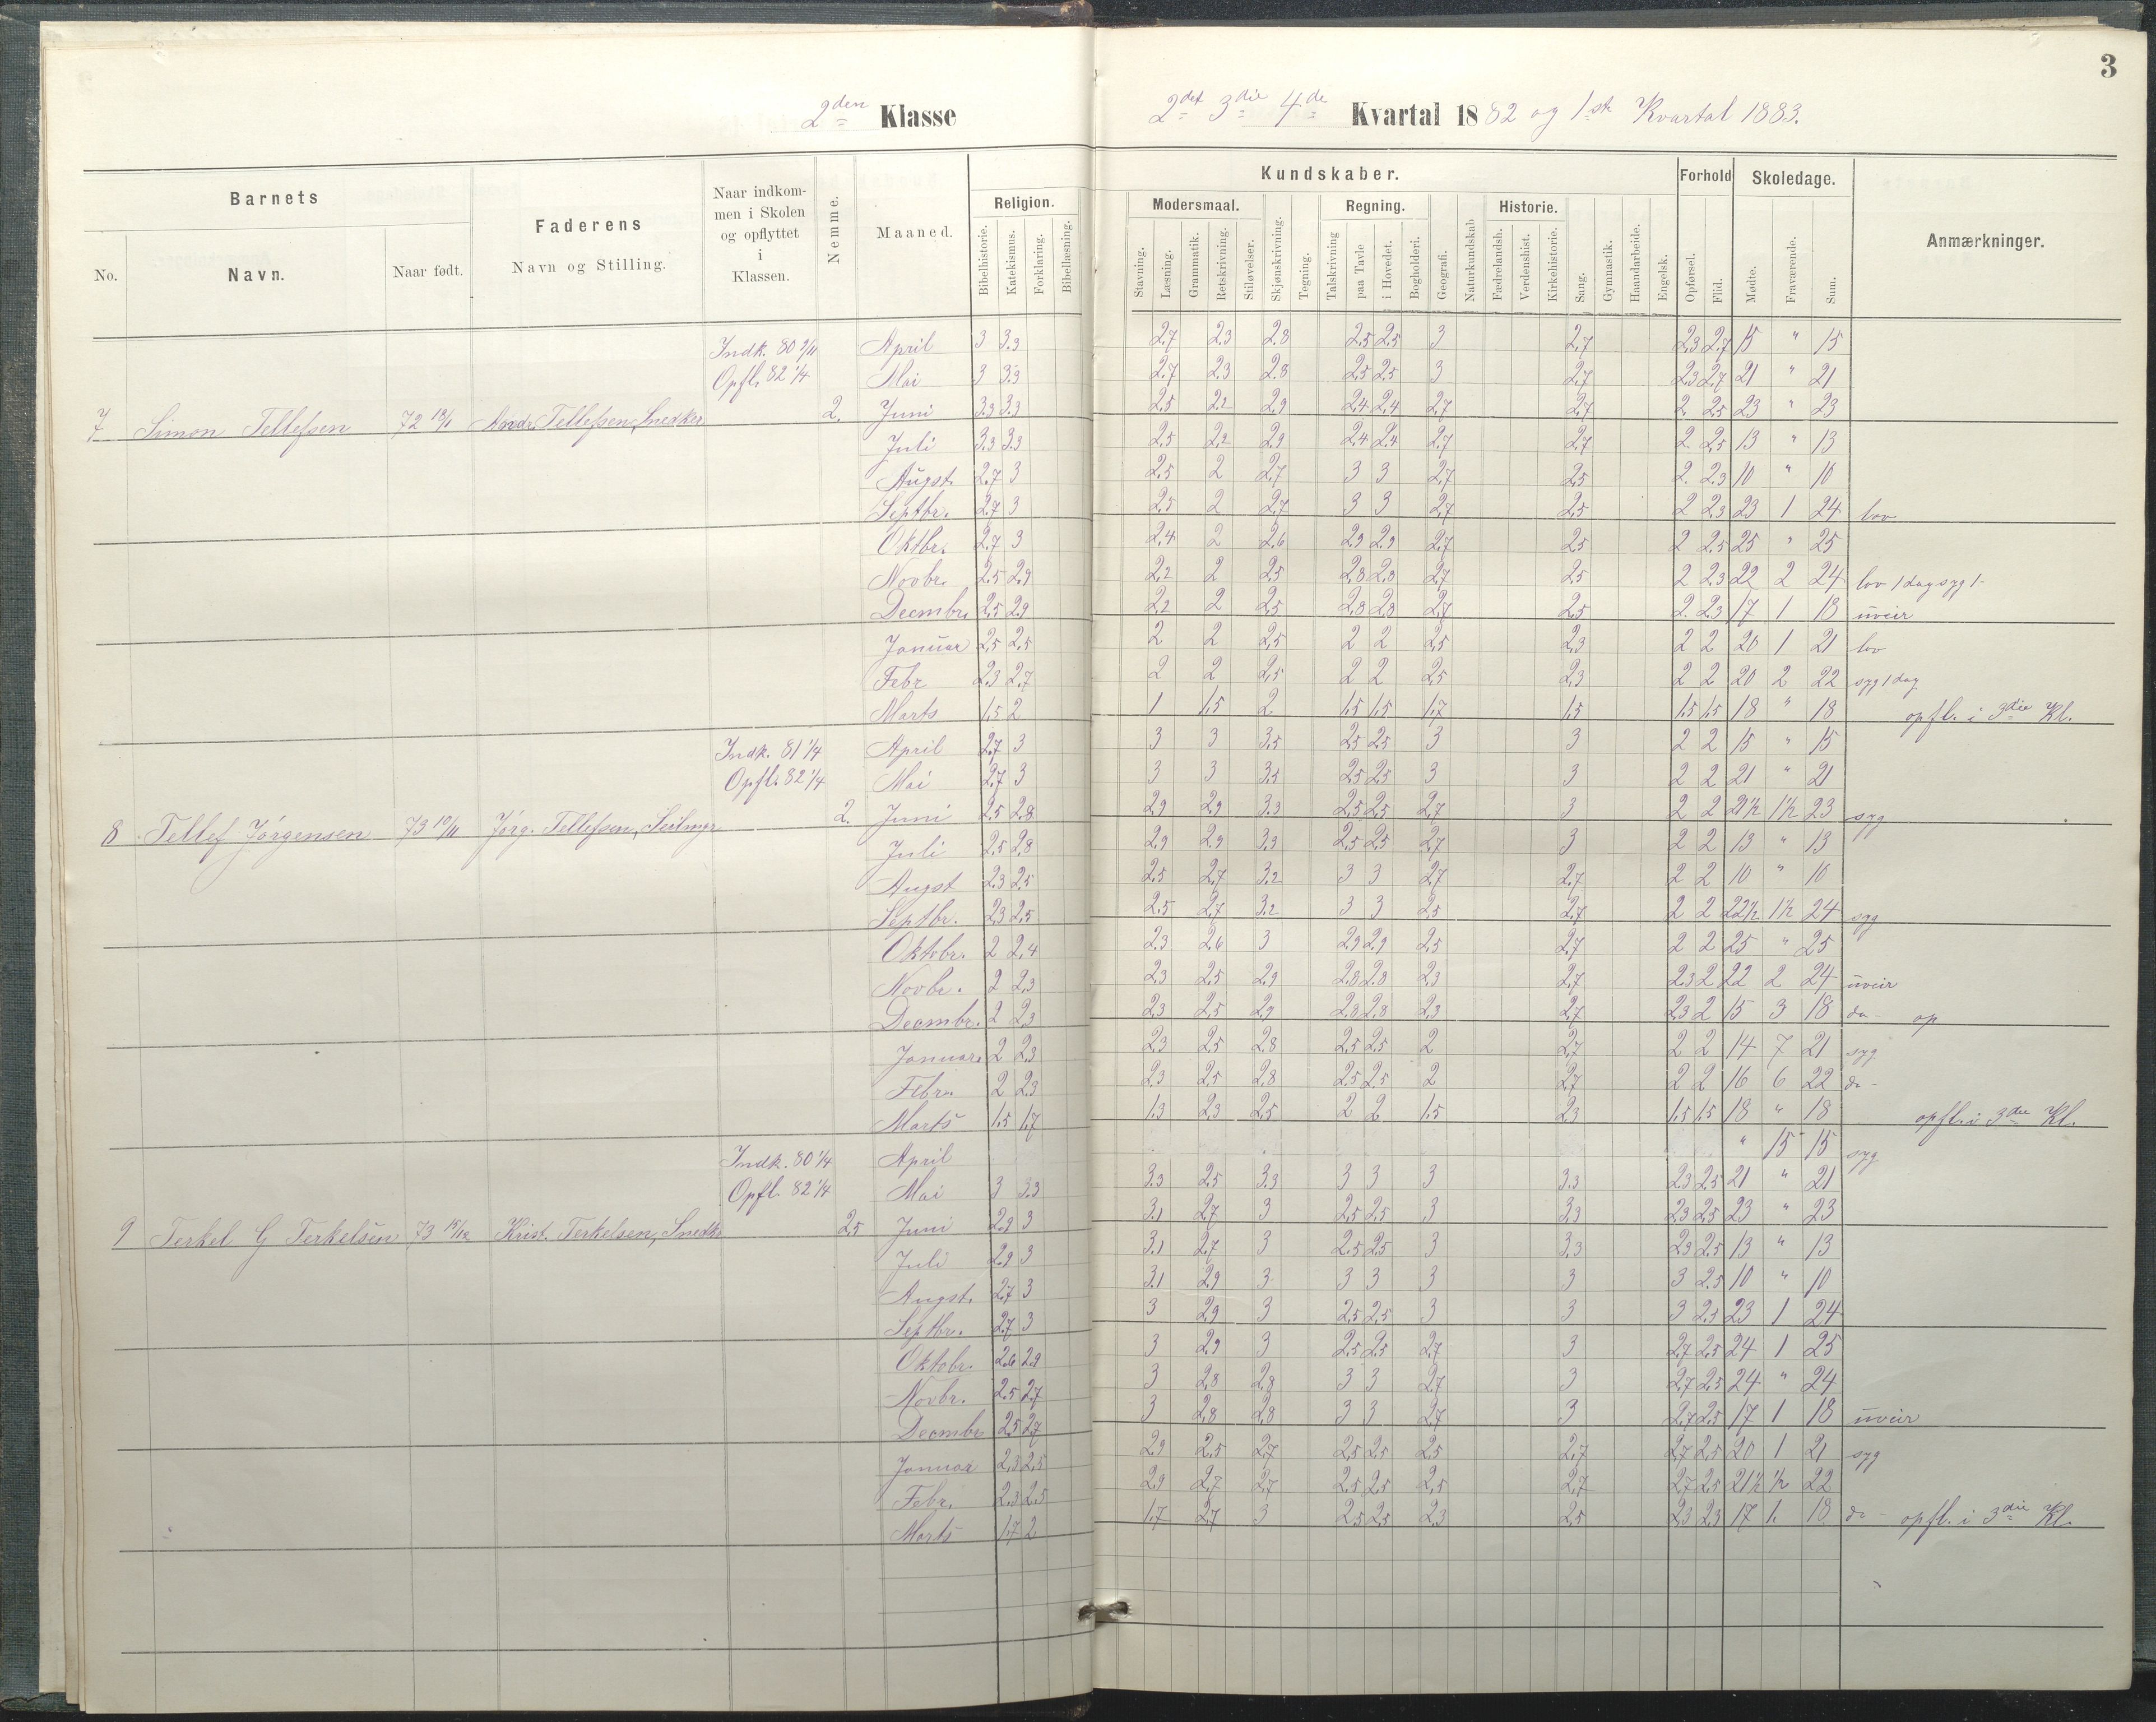 3
2den Klasse
2det 3die 4de Kvartal 1882 og 1ste Kvartal 1883.
Barnets
No.
Navn.
Naar født.
Faderens
Navn og Stilling.
Naar indkom-
men i Skolen
og opflyttet
i
Klassen.
Nemme.
Maaned.
Kundskaber.
Religion.
Bibelhistorie.
Katekismus.
Forklaring.
Bibellæsning.
Modersmaal.
Stavning.
Læsning.
Grammatik.
Retskrivning.
Stiløvelser.
Skjønskrivning.
Tegning.
Regning.
Talskrivning
paa Tavle
i Hovedet.
Bogholderi.
Geografi.
Naturkundskab
Historie.
Fædrelandsh.
Verdenshist.
Kirkehistorie.
Sang.
Gymnastik.
Haandarbeide.
Engelsk.
Forhold
Opførsel.
Flid.
Skoledage.
Mødte.
Fraværende.
Sum.
Anmærkninger.
Indk. 80 9/11 April 3 3.3 2.7 2.3 2.8 2.5 2.5 3 2.7 2.3 2.7 15 " 15
Opfl. 82 1/4 Mai 3 3.3 2.7 2.3 2.8 2.5 2.5 3 2.7 2.3 2.7 21 " 21
7 Simon Tellefsen 72 18/1 Andr. Tellefsen, Snedker 2. Juni 3.3 3.3 2.5 2.2 2.9 2.4 2.4 2.7 2.7 2 2.5 23 " 23
Juli 3.3 3.3 2.5 2.2 2.9 2.4 2.4 2.7 2.7 2 2.5 13 " 13
Augst. 2.7 3 2.5 2 2.7 3 3 2.7 2.5 2 2.3 10 " 10
Septbr. 2.7 3 2.5 2 2.7 3 3 2.7 2.5 2 2.3 23 1 24 lov
Oktbr. 2.7 3 2.4 2 2.6 2.9 2.9 2.7 2.5 2 2.5 25 " 25
Novbr. 2.5 2.9 2.2 2 2.5 2.8 2.8 2.7 2.5 2 2.3 22 2 24 lov 1 dag syg 1-
Decmbr. 2.5 2.9 2.2 2 2.5 2.8 2.8 2.7 2.5 2 2.3 17 1 18 uveir
Januar 2.5 2.5 2 2 2.5 2 2 2.5 2.3 2 2 20 1 21 lov
Febr 2.3 2.7 2 2 2.5 2 2 2.5 2.3 2 2 20 2 22 syg 1 dag
Marts 1.5 2 1 1.5 2 1.5 1.5 1.7 1.5 1.5 1.5 18 " 18 opfl. i 3die Kl.
Indk. 81 1/4 April 2.7 3 3 3 3.5 2.5 2.5 3 3 2 2 15 " 15
Opfl. 82 1/4 Mai 2.7 3 3 3 3.5 2.5 2.5 3 3 2 2 21 " 21
8 Tellef Jörgensen 73 19/11 Jörg. Tellefsen, Seilmgr 2. Juni 2.5 2.8 2.9 2.9 3.3 2.5 2.5 2.7 3 2 2 21½ 1½ 23 syg
Juli 2.5 2.8 2.9 2.9 3.3 2.5 2.5 2.7 3 2 2 13 " 13
Augst 2.3 2.5 2.5 2.7 3.2 3 3 2.7 2.7 2 2 10 " 10
Septbr. 2.3 2.5 2.5 2.7 3.2 3 3 2.5 2.7 2 2 22½ 1½ 24 syg
Oktobr. 2 2.4 2.3 2.6 3 2.9 2.9 2.5 2.7 2 2 25 " 25
Novbr. 2 2.3 2.3 2.5 2.9 2.8 2.8 2.3 2.7 2.3 2 22 2 24 uveir
Decmbr. 2 2.3 2.3 2.5 2.9 2.8 2.8 2.3 2.7 2.3 2 15 3 18 do- op
Januar. 2 2.3 2.3 2.5 2.8 2.5 2.5 2 2.7 2 2 14 7 21 syg
Febr. 2 2.3 2.3 2.5 2.8 2.5 2.5 2 2.7 2 2 16 6 22 do-
Marts 1.5 1.7 1.3 2.3 2.5 2 2 1.5 2.3 1.5 1.5 18 " 18 opfl. i 3die Kl.
Indk. 80 1/4 April " 15 15 syg
Opfl. 82 1/4 Mai 3 3.3 3.3 2.5 3.3 3 3 3 3.3 2.3 2.5 21 " 21
9 Terkel G Terkelsen 73 15/12 Krist. Terkelsen, Snedkr 2.5 Juni 2.9 3 3.1 2.7 3 2.5 2.5 3 3.3 2.3 2.5 23 " 23
Juli 2.9 3 3.1 2.7 3 2.5 2.5 3 3.3 2.3 2.5 13 " 13
Augst. 2.7 3 3.1 2.9 3 3 3 3 3 3 2.5 10 " 10
Septbr. 2.7 3 3 2.9 3 2.5 2.5 3 3 3 2.5 23 1 24
Oktobr. 2.6 2.9 3 2.9 3 2.5 2.5 2.7 3 2.7 2.5 24 1 25
Novbr. 2.5 2.7 3 2.8 2.8 3 3 2.7 3 2.7 2.5 24 " 24
Decmbr 2.5 2.7 3 2.8 2.8 3 3 2.7 3 2.7 2.5 17 1 18 uveir
Januar 2.3 2.5 2.9 2.5 2.7 2.5 2.5 2.5 2.7 2.7 2.5 20 1 21 syg
Febr. 2.3 2.5 2.9 2.7 2.7 2.5 2.5 2.5 2.7 2.7 2.5 21½ ½ 22
Marts 1.7 2 1.7 2.7 3 2.5 2.5 2.3 2.5 2.3 2.3 17 1. 18 do- opfl. i 3die Kl.